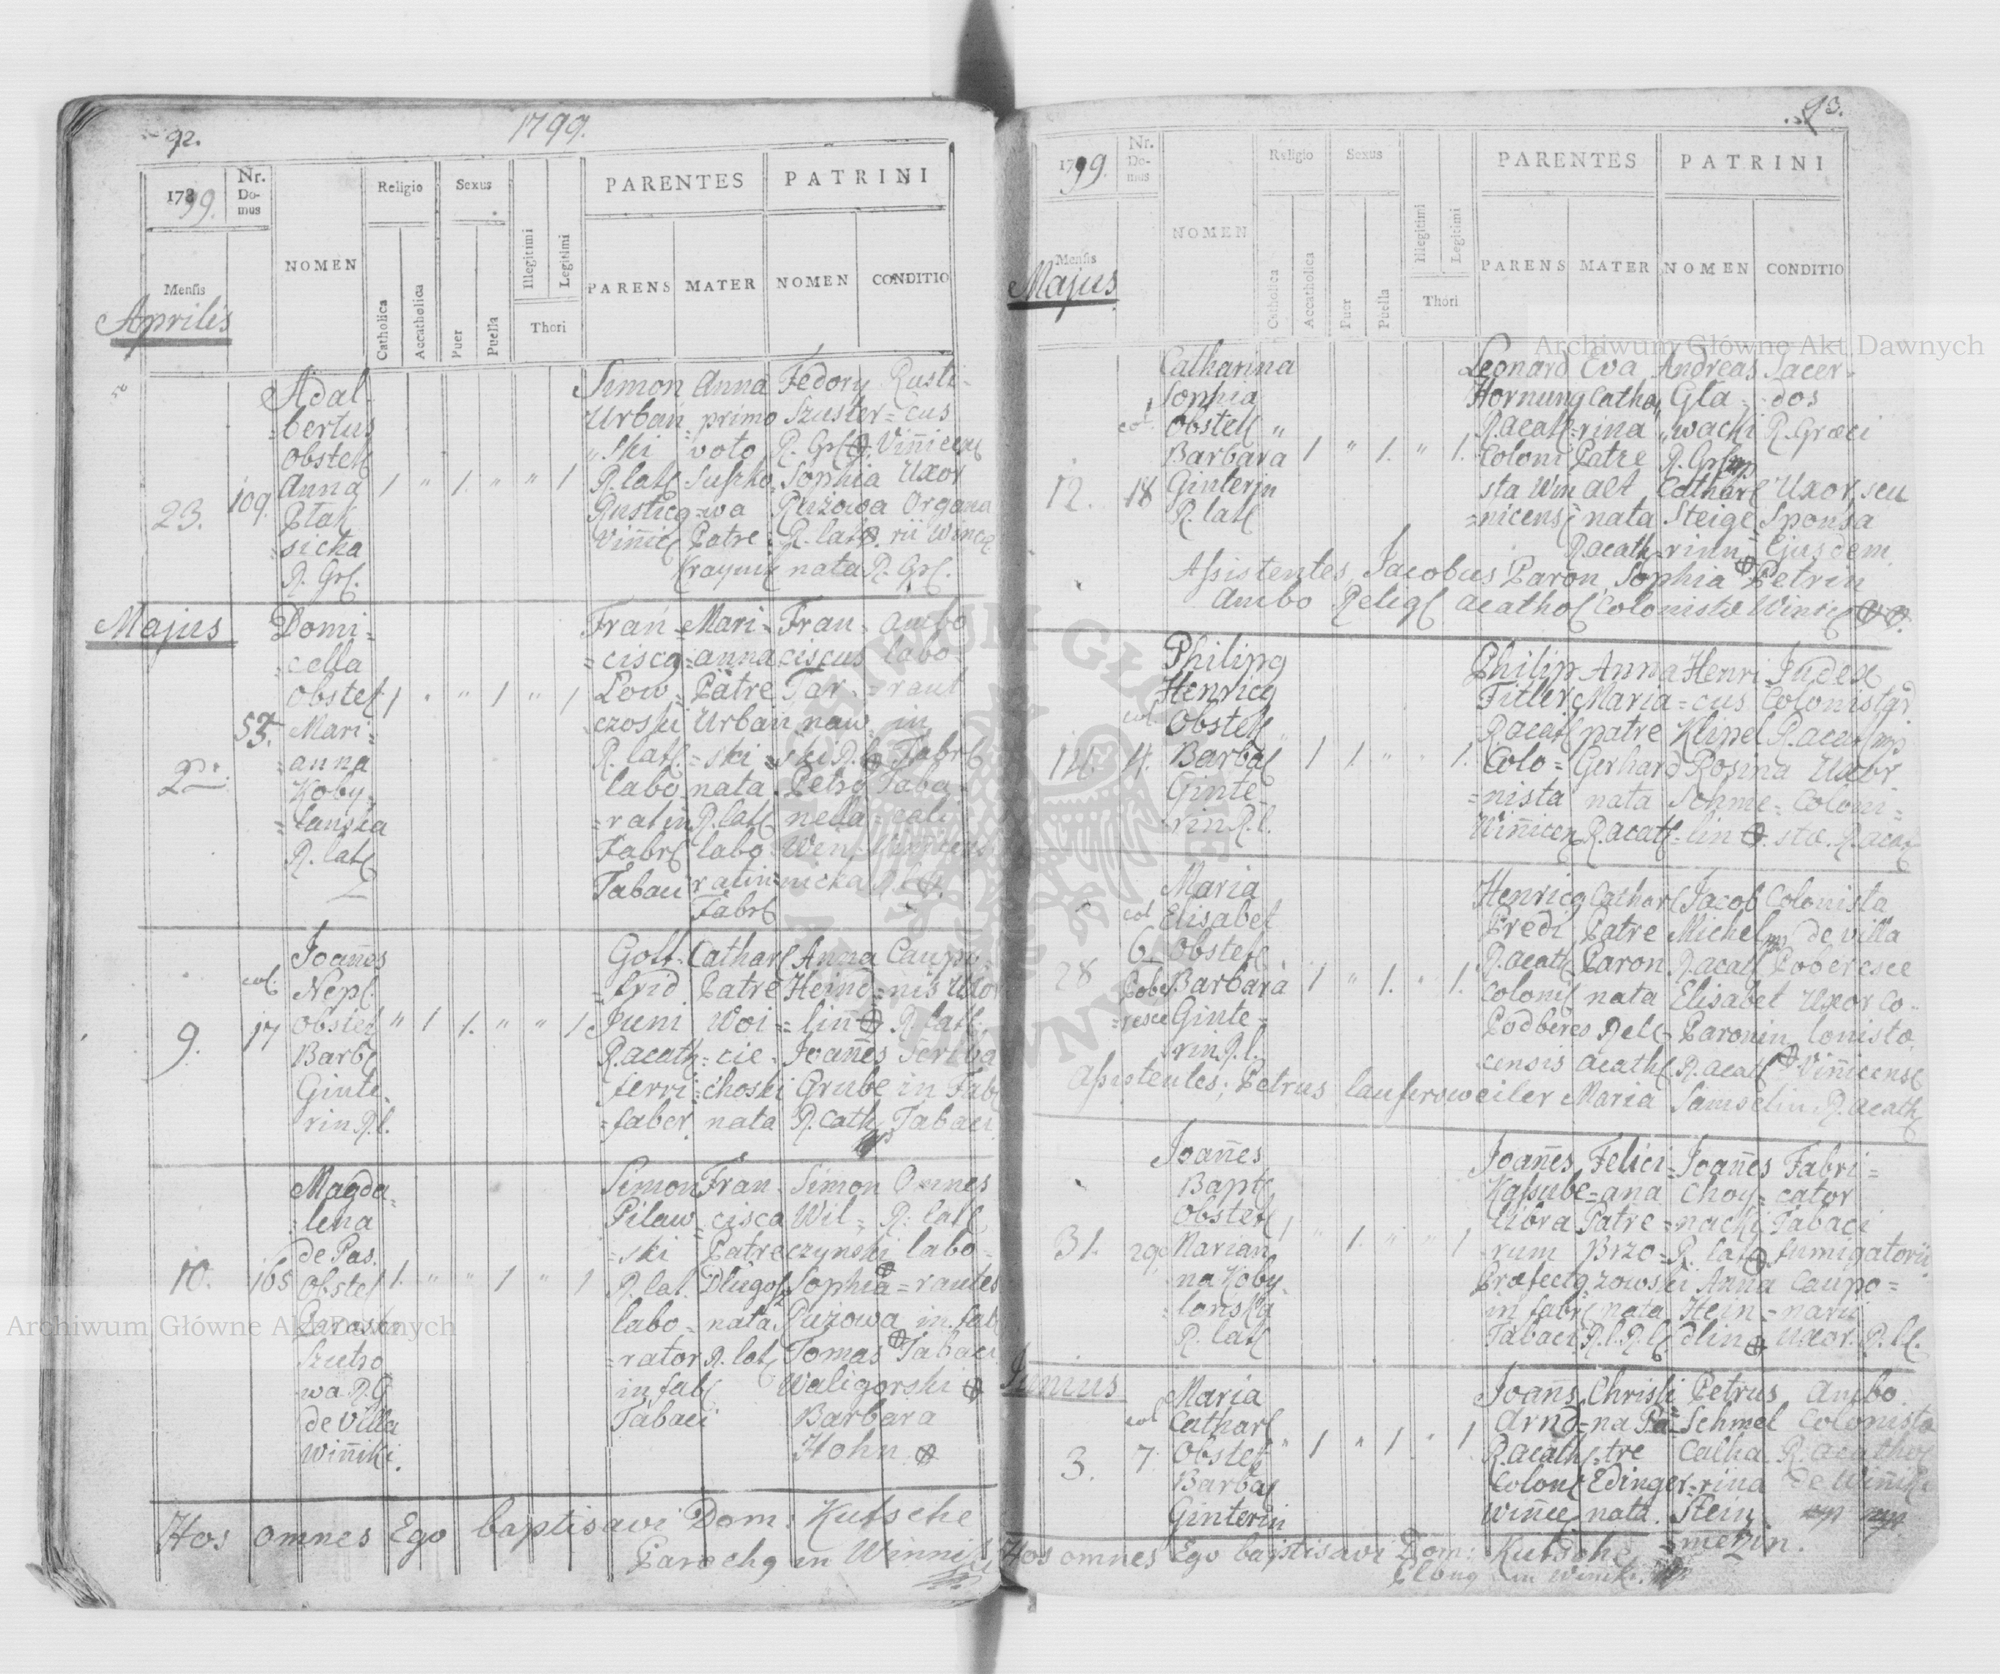 92.
1799.
1789 9.
Nr. Domus
NOMEN
Religio
Sexus
PARENTES
PATRINI
Mensis
Catholica
Accatholica
Puer
Puella
Illegitimi
Legitimi
Thori
PARENS
MATER
NOMEN
CONDITIO
Aprilis
23.
109.
Adal=
=bertus
obstet
Anna
Ptak
=sicka
R. Gr.
1 " 1. " " 1
Simon
Urbań=
"ski
R. lat
Rusticg
Viñic
Anna
primo
voto
Suszko
=wa
Patre
Kraynik
nata R. Gr.
Fedory
Szuster=
R. Gr.
Sophia
Ruzowa
R. lat.
Rusti=
cus
Viñicens
Uxor
Organa
rii Winic
Majus
2da
53.
Domi=
=cella
obstet
Mari=
=anna
Koby=
=lanska
R. lat
1 . " 1 " 1
Fran=
=ciscg
Low=
czoski
R. lat.
labo
=rat in
Fabr
Tabaci
Mari=
=anna
Patre
Urbań
=ski
nata
R. lat
labo=
ratin
Fabr
Fran=
ciscus
Tar=
naw
=ski R. l.
Petrg
nella
Wen
nicka
ambo
labo=
=rant
in
Fabr
Taba=
=ca
9.
col. 17
Joañes
Nep.
obstet
Barb
Ginte=
rin R. l.
" 1 1. " " 1
Gott=
=frid
Juni
R. acath
ferri
=faber
Cathar
Patre
Woi=
=cie=
=choski
nata
Anna
Heind
lin
Joañes
Grube
R. Cath
Caupo=
=nis Uxor
R. lat.
Scriba
in Fab
Tabaci
10.
165
Magda=
=lena
de Pas.
Obstet
Paraska
Szutro
wa R. G
de Villa
Wiñiki.
1. " " 1 " 1
Simon
Pilaw=
=ski
R. lat.
labo=
=rator
in fab
Tabaci
Fran=
cisca
Patre
Długosz
nata
R. lat
Simon
Wil=
czynski
Sophia
Ruzowa
Tomas
Waligorski
Barbara
Hohn
Omnes
R. lat
labo=
=rantes
in fab
Tabaci
Hos omnes Ego baptisavi Dom: Kutsche
Parochg in Winnik
93.
1799.
Nr. Domus
NOMEN
Religio
Sexus
PARENTES
PATRINI
Mensis
Catholica
Accatholica
Puer
Puella
Illegitimi
Legitimi
Thori
PARENS
MATER
NOMEN
CONDITIO
Majus
12.
col. 18
Catharina
Sophia
Obstet "
Barbara
Ginterin
R. lat
1 " 1. " 1.
Leonard
Hornung
R. acat
Coloni
sta Win
=nicensi
Eva
Catha
=rina
Patre
Alt
nata
R acath
Andreas
Gla=
"wacki
R. Gr
Cathar
Steige
=rinn
Sacer=
=dos
R. Græci
Uxor, seu
Sponsa
Ejusdem
Assistentes, Jacobus Paron, Sophia Petrin
Ambo Relig acathol Colonistæ Winic
14.
col. 4.
Philipg
Henricg
Obstet
Barba
Ginte=
rin R. l.
1 1. " " 1.
Philip
Fitler
R acat
Colo=
=nista
Viñicen
Anna
Maria
patre
Gerhard
nata
R. acat
Henri
=cus
Kleipel
Rosina
Schme=
=lin
Judex
Colonistar
R. acat
Uxor
Coloni=
stæ. R. acat
28
col 6 Pobe=
=resce
Maria
Elisabet
Obstet
Barbara
Ginte=
rin R. l.
1 " 1. " 1.
Henricg
Predi
R. acat
Colonis
Podberes
censis
Cathar
Patre
Paron
nata
Rel
acath
Jacob
Michel
R. acat
Elisabet
Paronin
R. acat
Colonista
de villa
Poberesce
Uxor Co=
lonistæ
Viñicens
Assistentes; Petrus lauferoweiler Maria Samselin R. acath
31.
29
Joañes
Bapt
Obstet
Marian
na Koby
=lanska
R. lat
1 " 1. " " 1
Joañes
Kassube=
libra
rum
Præfectg
in fabr
Tabaci
Felici=
=ana
Patre
Brzo=
zowski
nata
R. l.
Joañes
Choy=
=nacki
R. lat
Anna
Hein=
dlin
Fabri=
cator
Tabaci
fumigatorii
Caupo=
=narii
Uxor. R. l.
Junius
3.
col 7.
Maria
Cathar
Obstet
Barba
Ginterin
" 1 " 1 " 1
Joañs
Arnd
R. acath
Colon
Wiñice
Christi
=na Pa=
=tre
Edinger
nata.
Petrus
Schmel
Catha
=rina
Stein
=mezin.
Ambo
Colonistæ
R. acathol
de Wiñiki
Hos omnes Ego baptisavi Dom: Kutsche
Plbng in Winiki.
Archiwum Główne Akt Dawnych
Archiwum Główne Akt Dawnych
ARCHIWUM GŁÓWNE AKT DAWNYCH